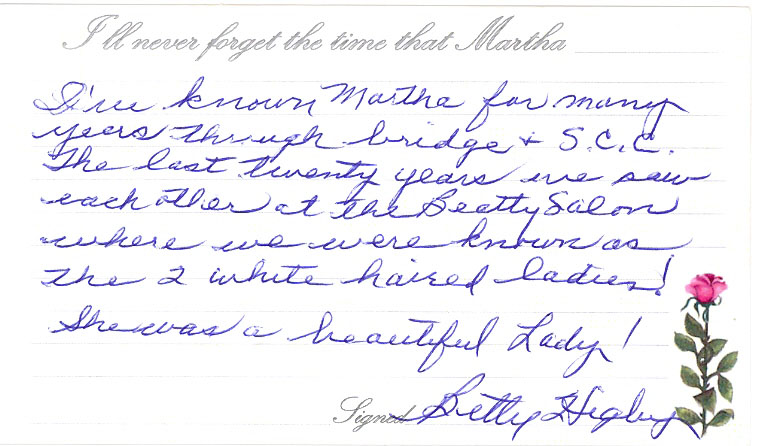 I'll never forget the time that Martha
I've known Martha for many
years through bridge + S.C.C.
The last twenty years we saw
each other at the Beatty Salon
where we were known as
the 2 white haired ladies!
She was a beautiful Lady!
Signed Betty Higby